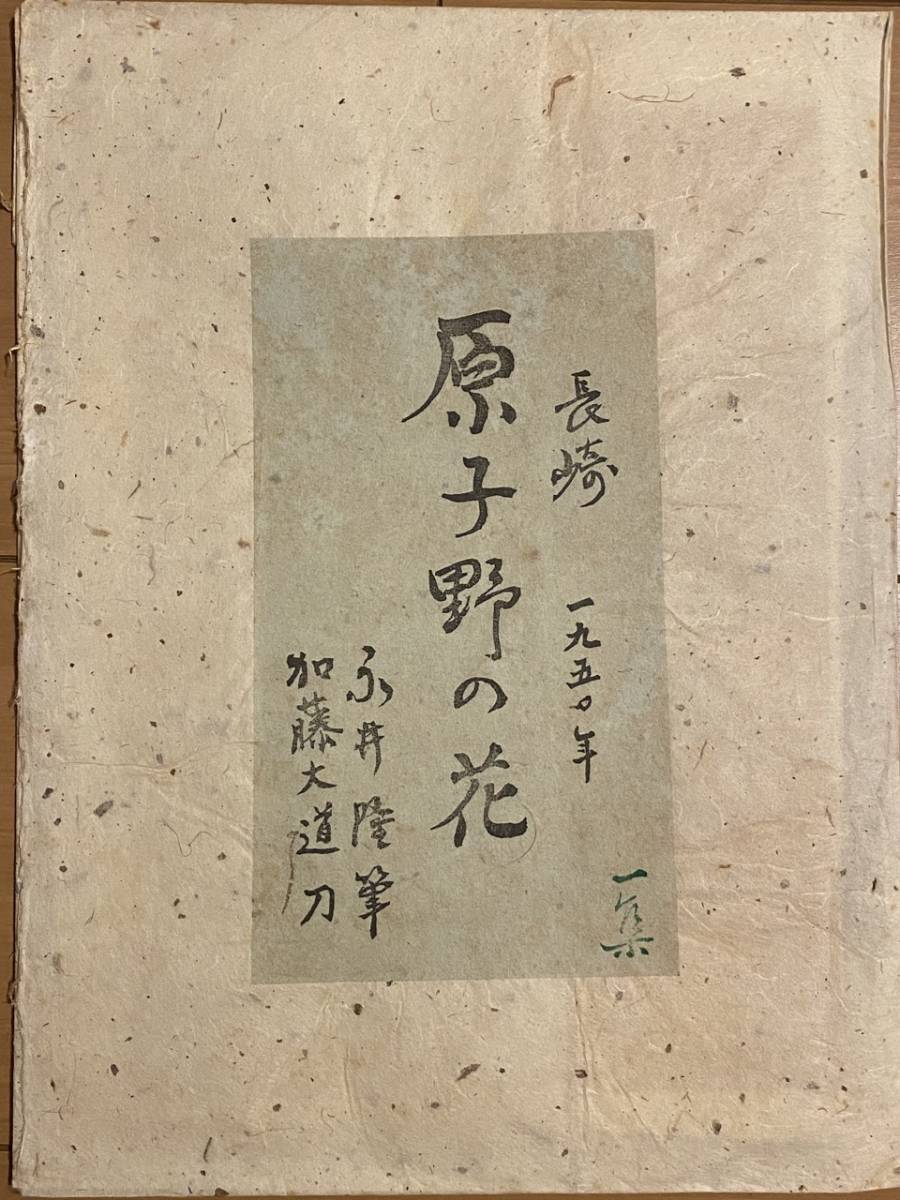 長崎 一九五〇年
一集
原子野の花
永井隆筆
加藤大道刀